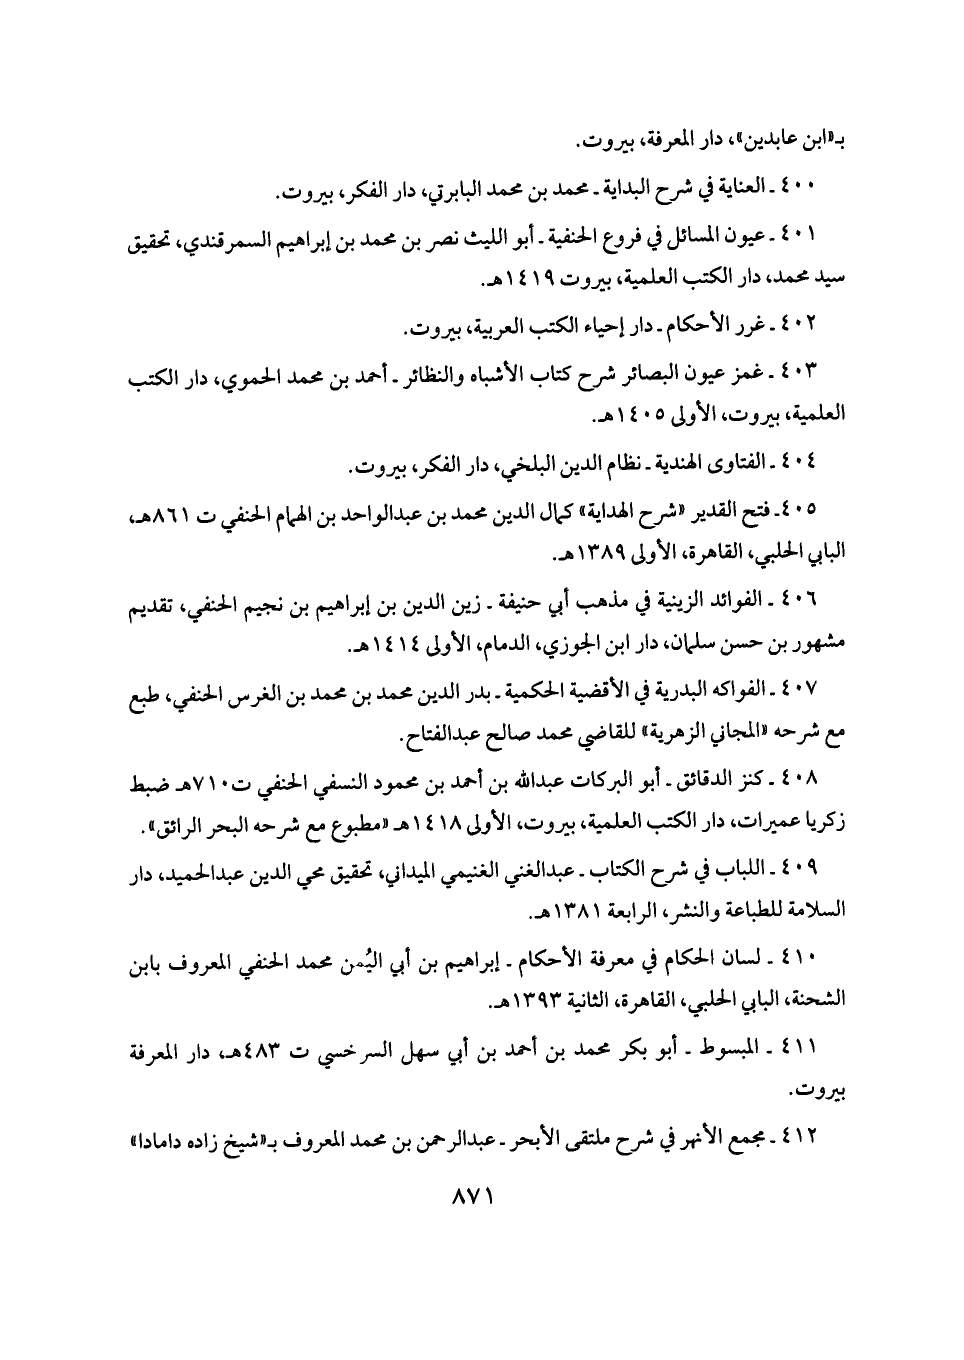 بـ«ابن عابدين»، دار المعرفة، بيروت.
٤٠٠ ـ العناية في شرح البداية ـ محمد بن محمد البابرتي، دار الفكر، بيروت.
٤٠١ ـ عيون المسائل في فروع الحنفية ـ أبو الليث نصر بن محمد بن إبراهيم السمرقندي، تحقيق
سيد محمد، دار الكتب العلمية، بيروت ١٤١٩هـ.
٤٠٢ ـ غرر الأحكام ـ دار إحياء الكتب العربية، بيروت.
٤٠٣ ـ غمز عيون البصائر شرح كتاب الأشباه والنظائر ـ أحمد بن محمد الحموي، دار الكتب
العلمية، بيروت، الأولى ١٤٠٥هـ.
٤٠٤ ـ الفتاوى الهندية ـ نظام الدين البلخي، دار الفكر، بيروت.
٤٠٥ـ فتح القدير «شرح الهداية» كمال الدين محمد بن عبدالواحد بن الهمام الحنفي ت ٨٦١هـ،
البابي الحلبي، القاهرة، الأولى ١٣٨٩هـ.
٤٠٦ ـ الفوائد الزينية في مذهب أبي حنيفة ـ زين الدين بن إبراهيم بن نجيم الحنفي، تقديم
مشهور بن حسن سلمان، دار ابن الجوزي، الدمام، الأولى ١٤١٤هـ.
٤٠٧ ـ الفواكه البدرية في الأقضية الحكمية ـ بدر الدين محمد بن محمد بن الغرس الحنفي، طبع
مع شرحه «المجاني الزهرية» للقاضي محمد صالح عبدالفتاح.
٤٠٨ ـ كنز الدقائق ـ أبو البركات عبدالله بن أحمد بن محمود النسفي الحنفي ت٧١٠هـ ضبط
زكريا عميرات، دار الكتب العلمية، بيروت، الأولى ١٤١٨هـ «مطبوع مع شرحه البحر الرائق».
٤٠٩ ـ اللباب في شرح الكتاب ـ عبدالغني الغنيمي الميداني، تحقيق محي الدين عبدالحميد، دار
السلامة للطباعة والنشر، الرابعة ١٣٨١هـ.
٤١٠ ـ لسان الحكام في معرفة الأحكام ـ إبراهيم بن أبي اليُمن محمد الحنفي المعروف بابن
الشحنة، البابي الحلبي، القاهرة، الثانية ١٣٩٣هـ.
٤١١ ـ المبسوط ـ أبو بكر محمد بن أحمد بن أبي سهل السرخسي ت ٤٨٣هـ، دار المعرفة
بيروت.
٤١٢ ـ مجمع الأنهر في شرح ملتقى الأبحر ـ عبدالرحمن بن محمد المعروف بـ«شيخ زاده دامادا»
٨٧١